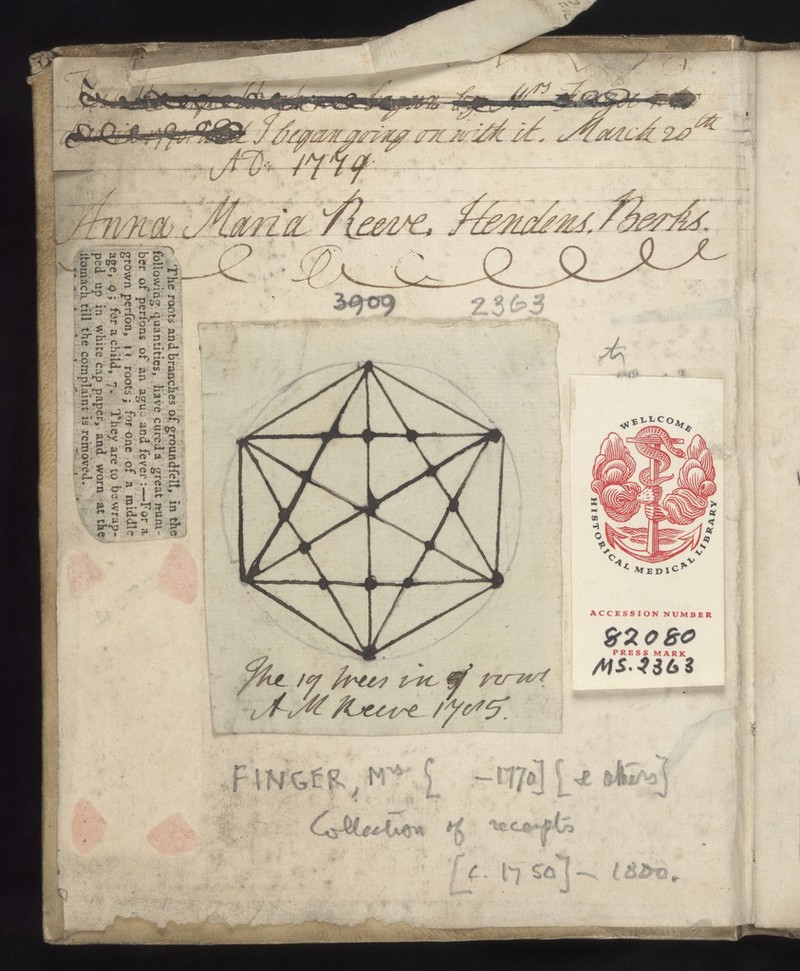 begun by Mrs
I began going on with it. March 20th
AD. 1779.
Anna Maria Reeve. Hendens. Berks.
3909 2363
The roots and branches of groundſell, in the
following quantities, have cured a great num-
ber of perſons of an ague and fever:—For a
grown perſon, 11 roots; for one of a middle
age, 9; for a child, 7. They are to be wrap-
ped up in white cap paper, and worn at the
ſtomach till the complaint is removed.
WELLCOME
HISTORICAL MEDICAL LIBRARY
ACCESSION NUMBER
82080
PRESS MARK
MS. 2363
The 19 trees in 9 rows
A M Reeve 1785.
FINGER, Mrs [ –1770] [& others]
Collection of receipts
[c. 1750] – 1800.